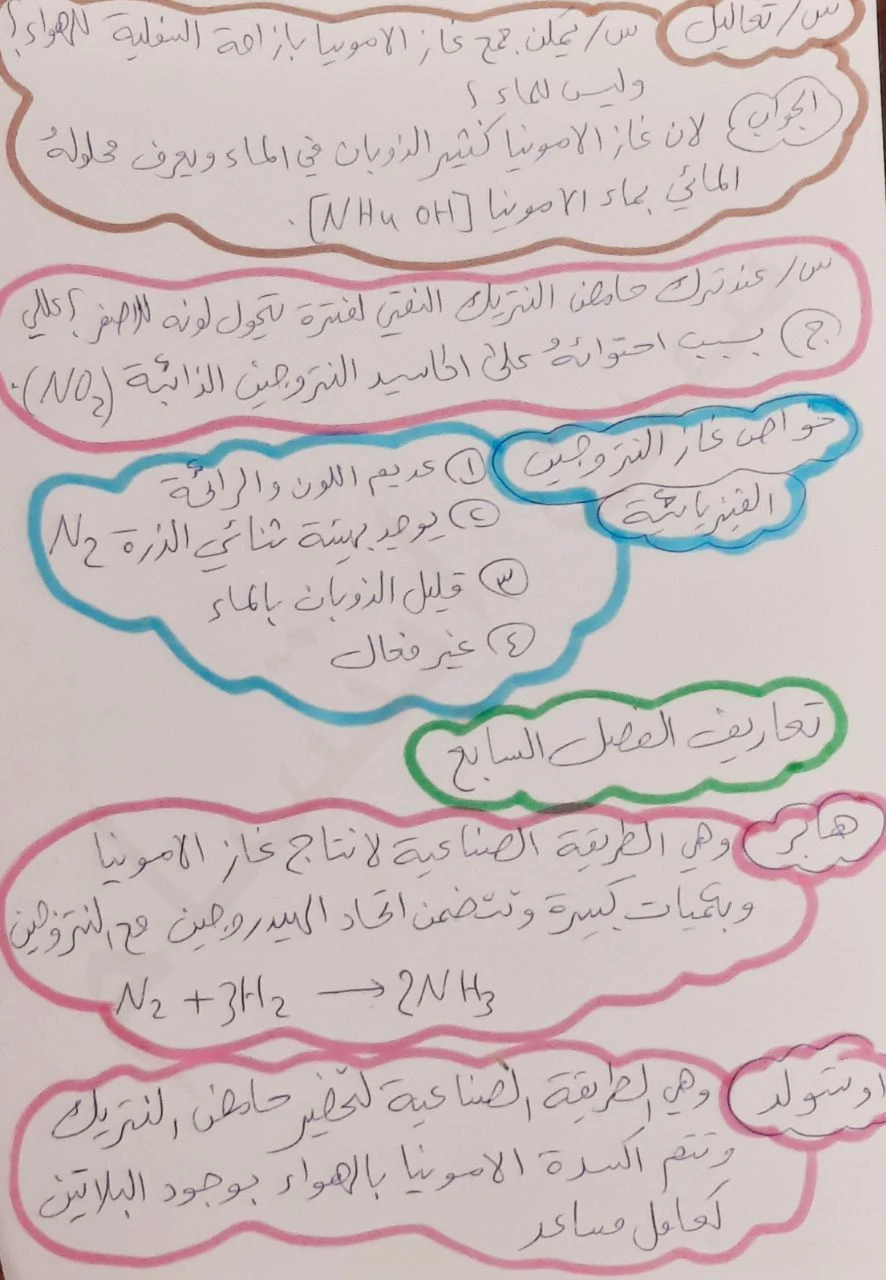 س/ تعاليل
س/ يمكن جمع غاز الامونيا بازاحة السفلية للهواء؟
وليس للماء؟
الجواب لان غاز الامونيا كثير الذوبان في الماء ويعرف محلولهُ
المائي بماء الامونيا [NH4 OH].
س/ عند ترك حامض النتريك النقي لفترة يتحول لونه للاصفر؟ عللي
ج بسبب احتوائهُ على اكاسيد النتروجين الذائبة (NO2).
خواص غاز النتروجين
الفيزيائية
① عديم اللون والرائحة
② يوجد بهيئة ثنائي الذرة N2
③ قليل الذوبان بالماء
④ غير فعال
تعاريف الفصل السابع
هابر وهي الطريقة الصناعية لانتاج غاز الامونيا
وبكميات كبيرة وتتضمن اتحاد الهيدروجين مع النتروجين
N2 + 3H2 → 2NH3
اوستولد وهي الطريقة الصناعية لتحضير حامض النتريك
وتتم اكسدة الامونيا بالهواء بوجود البلاتين
كعامل مساعد